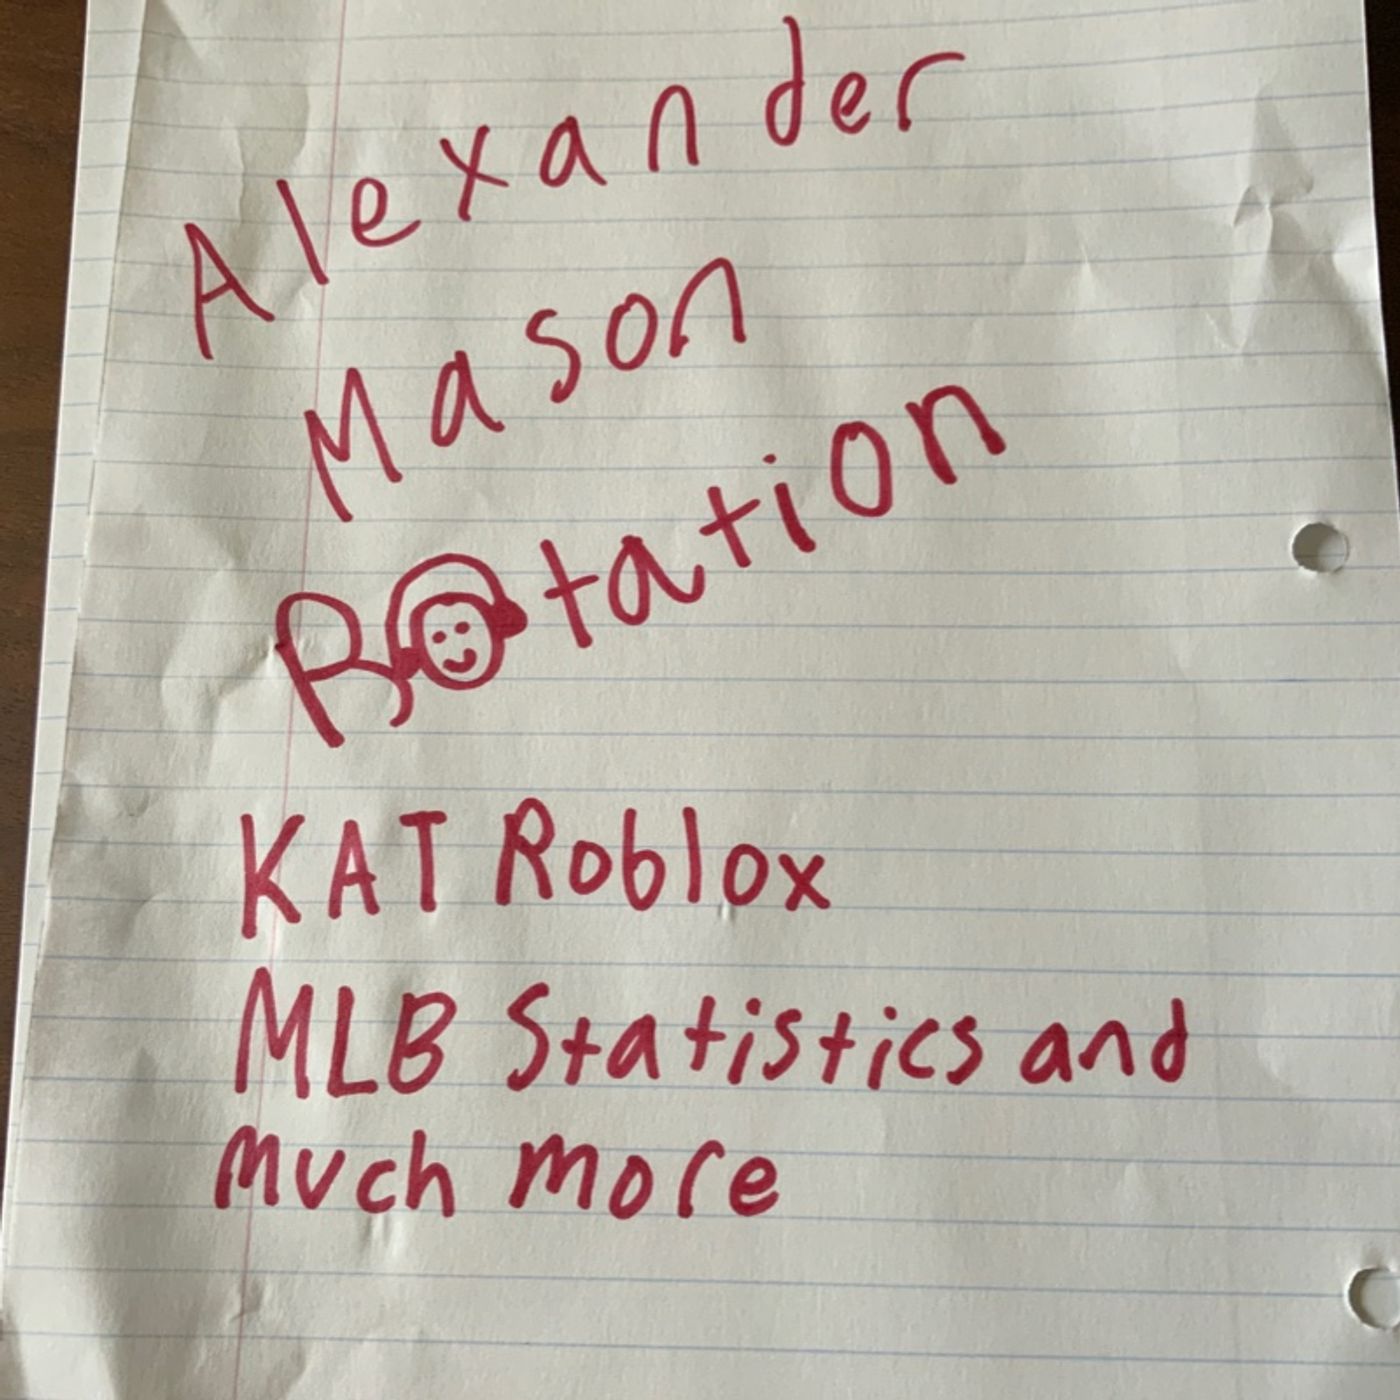 Alexander
Mason
Rotation
KAT Roblox
MLB Statistics and
much more